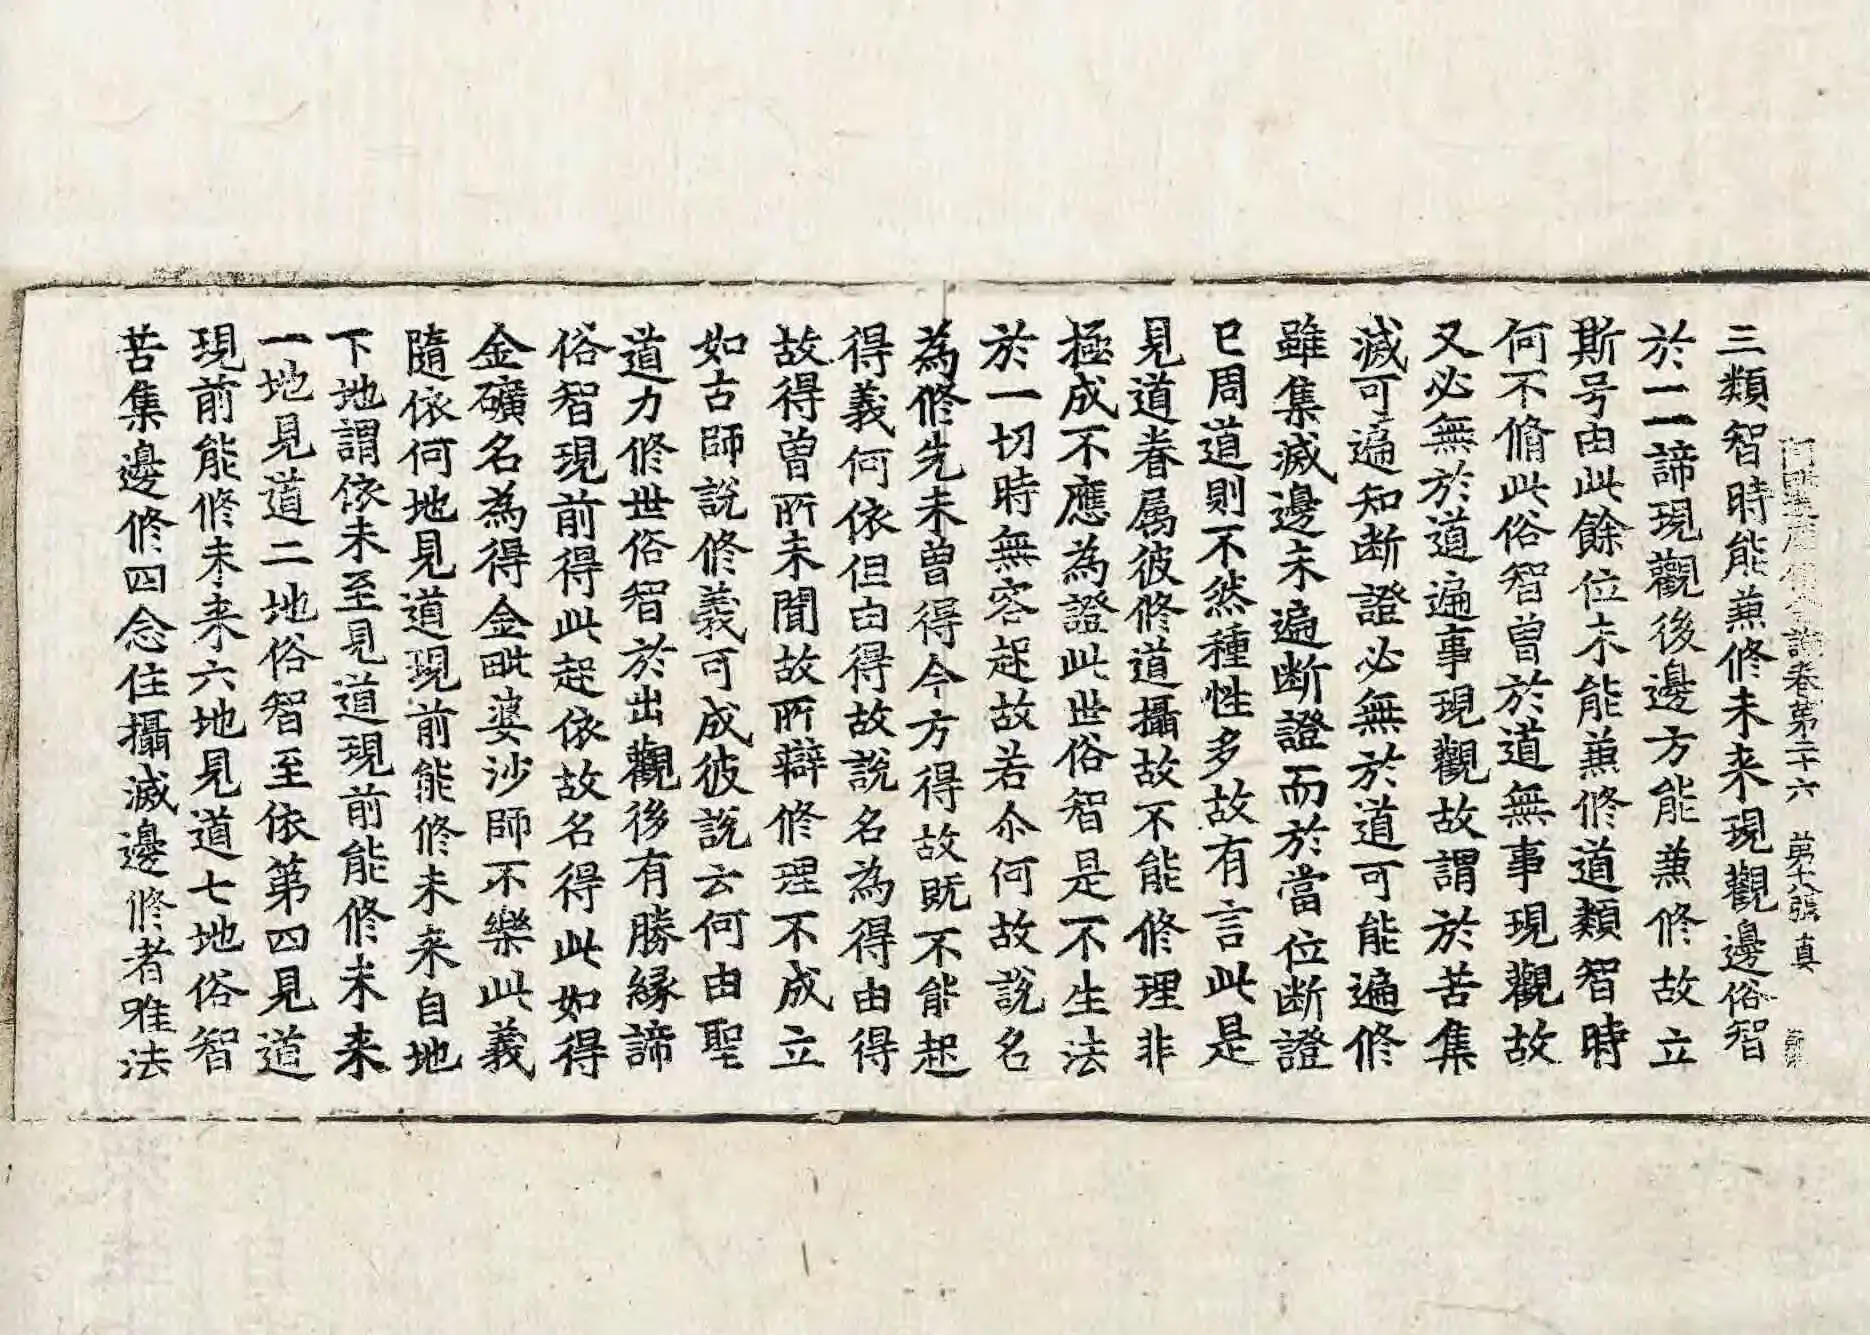 阿毗達磨俱舍論卷第二十六 第十八張 真
三類智時能兼修未来現觀邊俗智
於一一諦現觀後邊方能兼修故立
斯号由此餘位未能兼修道類智時
何不脩此俗智曾於道無事現觀故
又必無於道遍事現觀故謂於苦集
滅可遍知断證必無於道可能遍修
雖集滅邊未遍断證而於當位断證
已周道則不然種性多故有言此是
見道眷属彼修道攝故不能修理非
極成不應為證此世俗智是不生法
於一切時無容起故若尒何故說名
為修先未曾得今方得故既不能起
得義何依但由得故說名為得由得
故得曾所未聞故所辯修理不成立
如古師說修義可成彼說云何由聖
道力修世俗智於出觀後有勝縁諦
俗智現前得此起依故名得此如得
金礦名為得金毗婆沙師不樂此義
隨依何地見道現前能修未来自地
下地謂依未至見道現前能修未来
一地見道二地俗智至依第四見道
現前能修未来六地見道七地俗智
苦集邊修四念住攝滅邊修者唯法